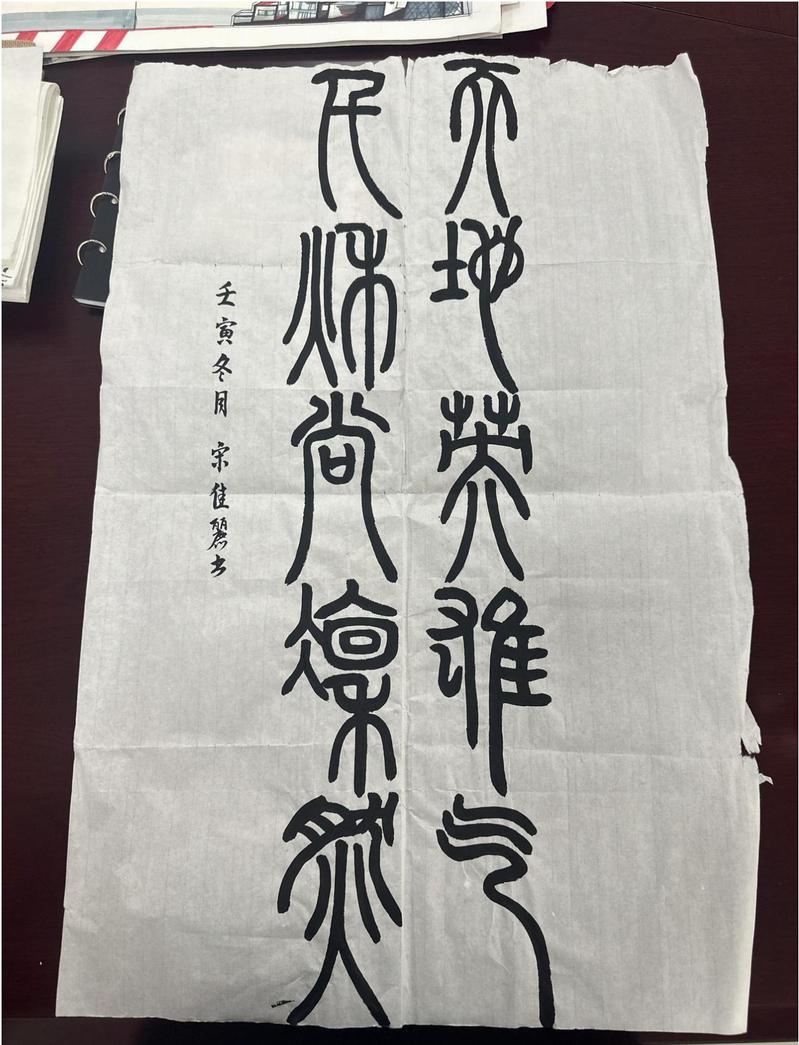 天地英雄气
千秋尚凜然
壬寅冬月 宋佳麗书